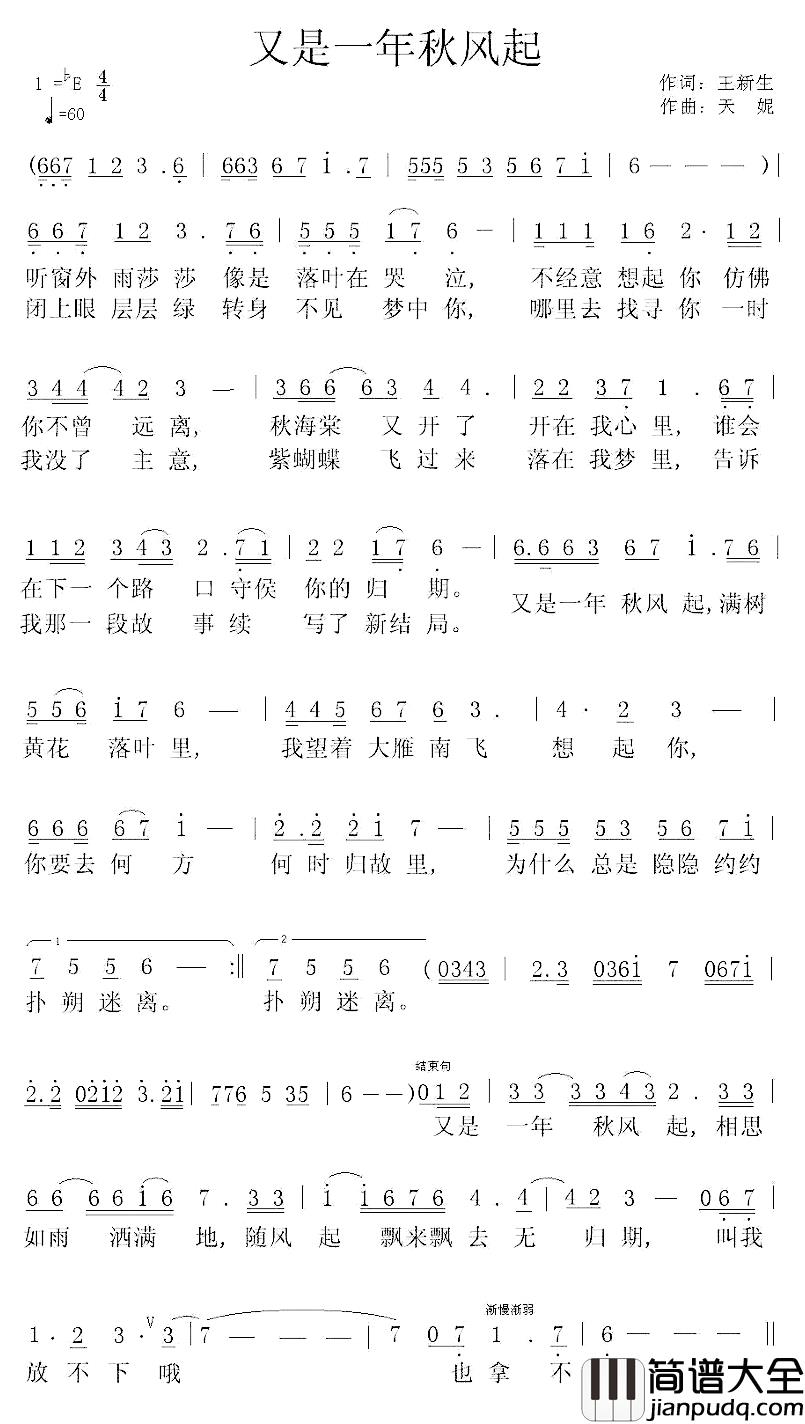 又是一年秋风起
1=♭E 4/4
作词：王新生
♩=60
作曲：天 妮
(667 123.6 | 663 67i.7 | 555 53 567i | 6 — — —)|
667 123.76 | 555 176 — | 111 162·12 |
听窗外 雨莎莎 像是 落叶在 哭 泣， 不经意 想起你 仿佛
闭上眼 层层绿 转身 不见 梦中你， 哪里去 找寻你 一时
344 423 — | 366 634 4. | 22 371.67 |
你不曾 远离， 秋海棠 又开了 开在我心里，谁会
我没了 主意， 紫蝴蝶 飞过来 落在我梦里，告诉
112 3432.71 | 22 176 — | 6.663 67i.76 |
在下一个路 口守侯 你的归 期。 又是一年 秋风 起，满树
我那一段故 事续 写了新结局。
556 i76 — | 445 6763. | 4·23 — |
黄花 落叶里， 我望着 大雁南飞 想 起 你，
666 67i — | 2.2 2i7 — | 555 53 56 7i |
你要去 何 方 何时归故里， 为什么 总是 隐隐 约约
1 2
7556 — :‖ 7556 (0343 | 2.3 036i 7 067i |
扑朔迷离。 扑朔迷离。
结束句
2.2 02i2 3.2i | 776 5 35 | 6 — —)012 | 33 33432.33 |
又是 一年 秋风 起，相思
66 66i67.33 | i i6764.4 | 423 — 067 |
如雨 洒满 地，随风 起 飘来飘去 无 归期， 叫我
渐慢渐弱
1·23·V3 | 7 — — — | 7 071.7 | 6 — — ‖
放不下 哦 也拿不
简谱大全
jianpudq.com